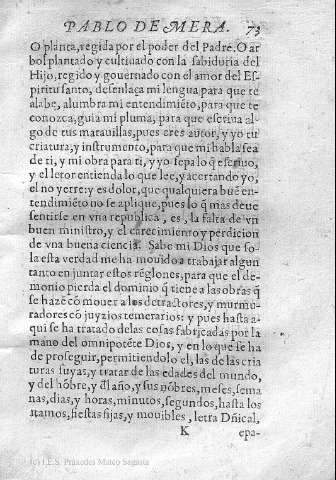 PABLO DE MERA. 73
O planta, regida por el poder del Padre. O ar
bol plantado y cultiuado con la sabiduria del
Hijo, regido y gouernado con el amor del Es-
piritu santo, desenlaça mi lengua para que te
alabe, alumbra mi entendimiẽto, para que te
conozca, guia mi pluma, para que escriua al-
go de tus marauillas, pues eres autor, y yo tu
criatura, y instrumento, para que mi habla sea
de ti, y mi obra para ti, y yo sepa lo q̃ escriuo,
y el letor entienda lo que lee, y acertando yo,
el no yerre: y es dolor, que qualquiera buẽ en-
tendimiẽto no se aplique, pues lo q̃ mas deue
sentirse en vna republica, es, la falta de vn
buen ministro, y el carecimiento y perdicion
de vna buena ciencia. Sabe mi Dios que so-
la esta verdad me ha mouido a trabajar algun
tanto en juntar estos rẽglones, para que el de-
monio pierda el dominio q̃ tiene a las obras q̃
se hazẽ cõ mouer a los detractores, y murmu-
radores cõ juyzios temerarios: y pues hasta a-
qui se ha tratado de las cosas fabricadas por la
mano del omnipotẽte Dios, y en lo que se ha
de proseguir, permitiendolo el, las de las cria
turas suyas, y tratar de las edades del mundo,
y del hõbre, y d̃l año, y sus nõbres, meses, sema
nas, dias, y horas, minutos, segundos, hasta los
atamos, fiestas fijas, y mouibles, letra Dñical,
K epa-
(c) I.E.S. Práxedes Mateo Sagasta